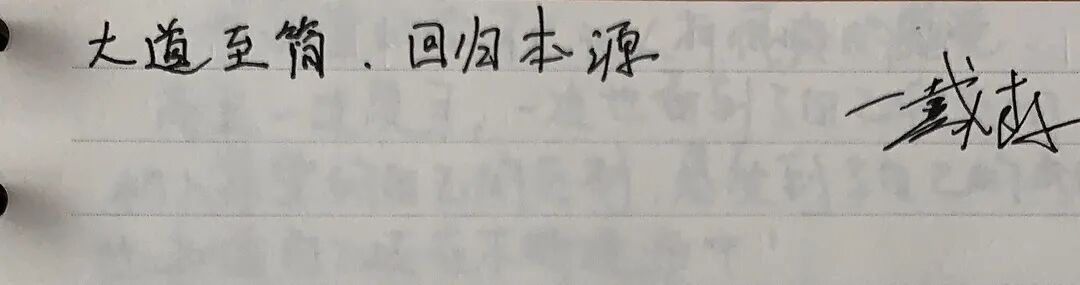 大道至简.回归本源
一戴